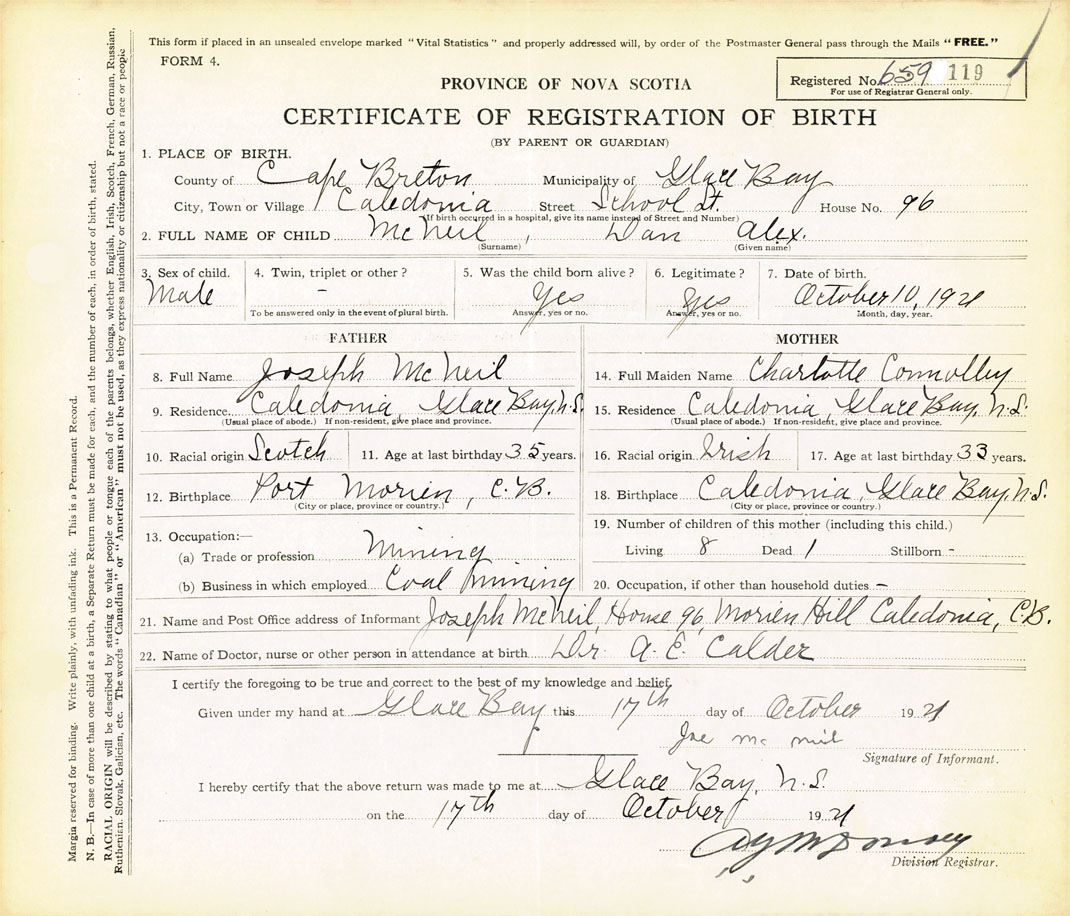 This form if placed in an unsealed envelope marked "Vital Statistics" and properly addressed will, by order of the Postmaster General pass through the Mails "FREE."
FORM 4.
Registered No. 659 119
For use of Registrar General only.
PROVINCE OF NOVA SCOTIA
CERTIFICATE OF REGISTRATION OF BIRTH
(BY PARENT OR GUARDIAN)
1. PLACE OF BIRTH.
County of Cape Breton Municipality of Glace Bay
City, Town or Village Caledonia Street School St. House No. 96
(If birth occurred in a hospital, give its name instead of Street and Number)
2. FULL NAME OF CHILD McNeil, Dan Alex.
(Surname) (Given name)
3. Sex of child. 4. Twin, triplet or other? 5. Was the child born alive? 6. Legitimate? 7. Date of birth.
Male - Yes Yes October 10, 1921
To be answered only in the event of plural birth. Answer, yes or no. Answer, yes or no. Month, day, year.
FATHER MOTHER
8. Full Name Joseph McNeil 14. Full Maiden Name Charlotte Connolley
9. Residence Caledonia, Glace Bay, N.S. 15. Residence Caledonia, Glace Bay, N.S.
(Usual place of abode.) If non-resident, give place and province. (Usual place of abode.) If non-resident, give place and province.
10. Racial origin Scotch 11. Age at last birthday 35 years. 16. Racial origin Irish 17. Age at last birthday 33 years.
12. Birthplace Port Morien, C.B. 18. Birthplace Caledonia, Glace Bay, N.S.
(City or place, province or country.) (City or place, province or country.)
19. Number of children of this mother (including this child.)
13. Occupation:—
(a) Trade or profession Mining Living 8 Dead 1 Stillborn -
(b) Business in which employed Coal Mining 20. Occupation, if other than household duties —
21. Name and Post Office address of Informant Joseph McNeil, House 96, Morien Hill Caledonia, C.B.
22. Name of Doctor, nurse or other person in attendance at birth Dr. A. E. Calder
I certify the foregoing to be true and correct to the best of my knowledge and belief.
Given under my hand at Glace Bay this 17th day of October 1921
Joe Mc neil
Signature of Informant.
I hereby certify that the above return was made to me at Glace Bay, N.S.
on the 17th day of October 1921
Division Registrar.
Margin reserved for binding. Write plainly, with unfading ink. This is a Permanent Record.
N. B.—In case of more than one child at a birth, a Separate Return must be made for each, and the number of each, in order of birth, stated.
RACIAL ORIGIN will be described by stating to what people or tongue each of the parents belongs, whether English, Irish, Scotch, French, German, Russian,
Ruthenian, Slovak, Galician, etc. The words "Canadian" or "American" must not be used, as they express nationality or citizenship but not a race or people